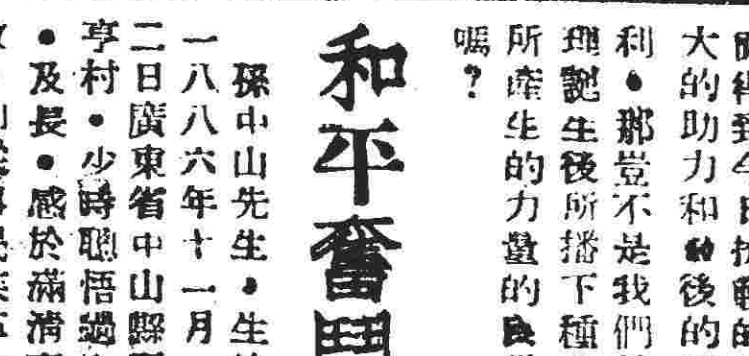 大的助力和後的
利・那豈不是我們
理說生後所播下種
所產生的力量的良
嗎？
和平奮鬥
孫中山先生・生
一八八六年十一月
二日廣東省中山縣
亨村・少時聰悟過
・及長・感於滿清